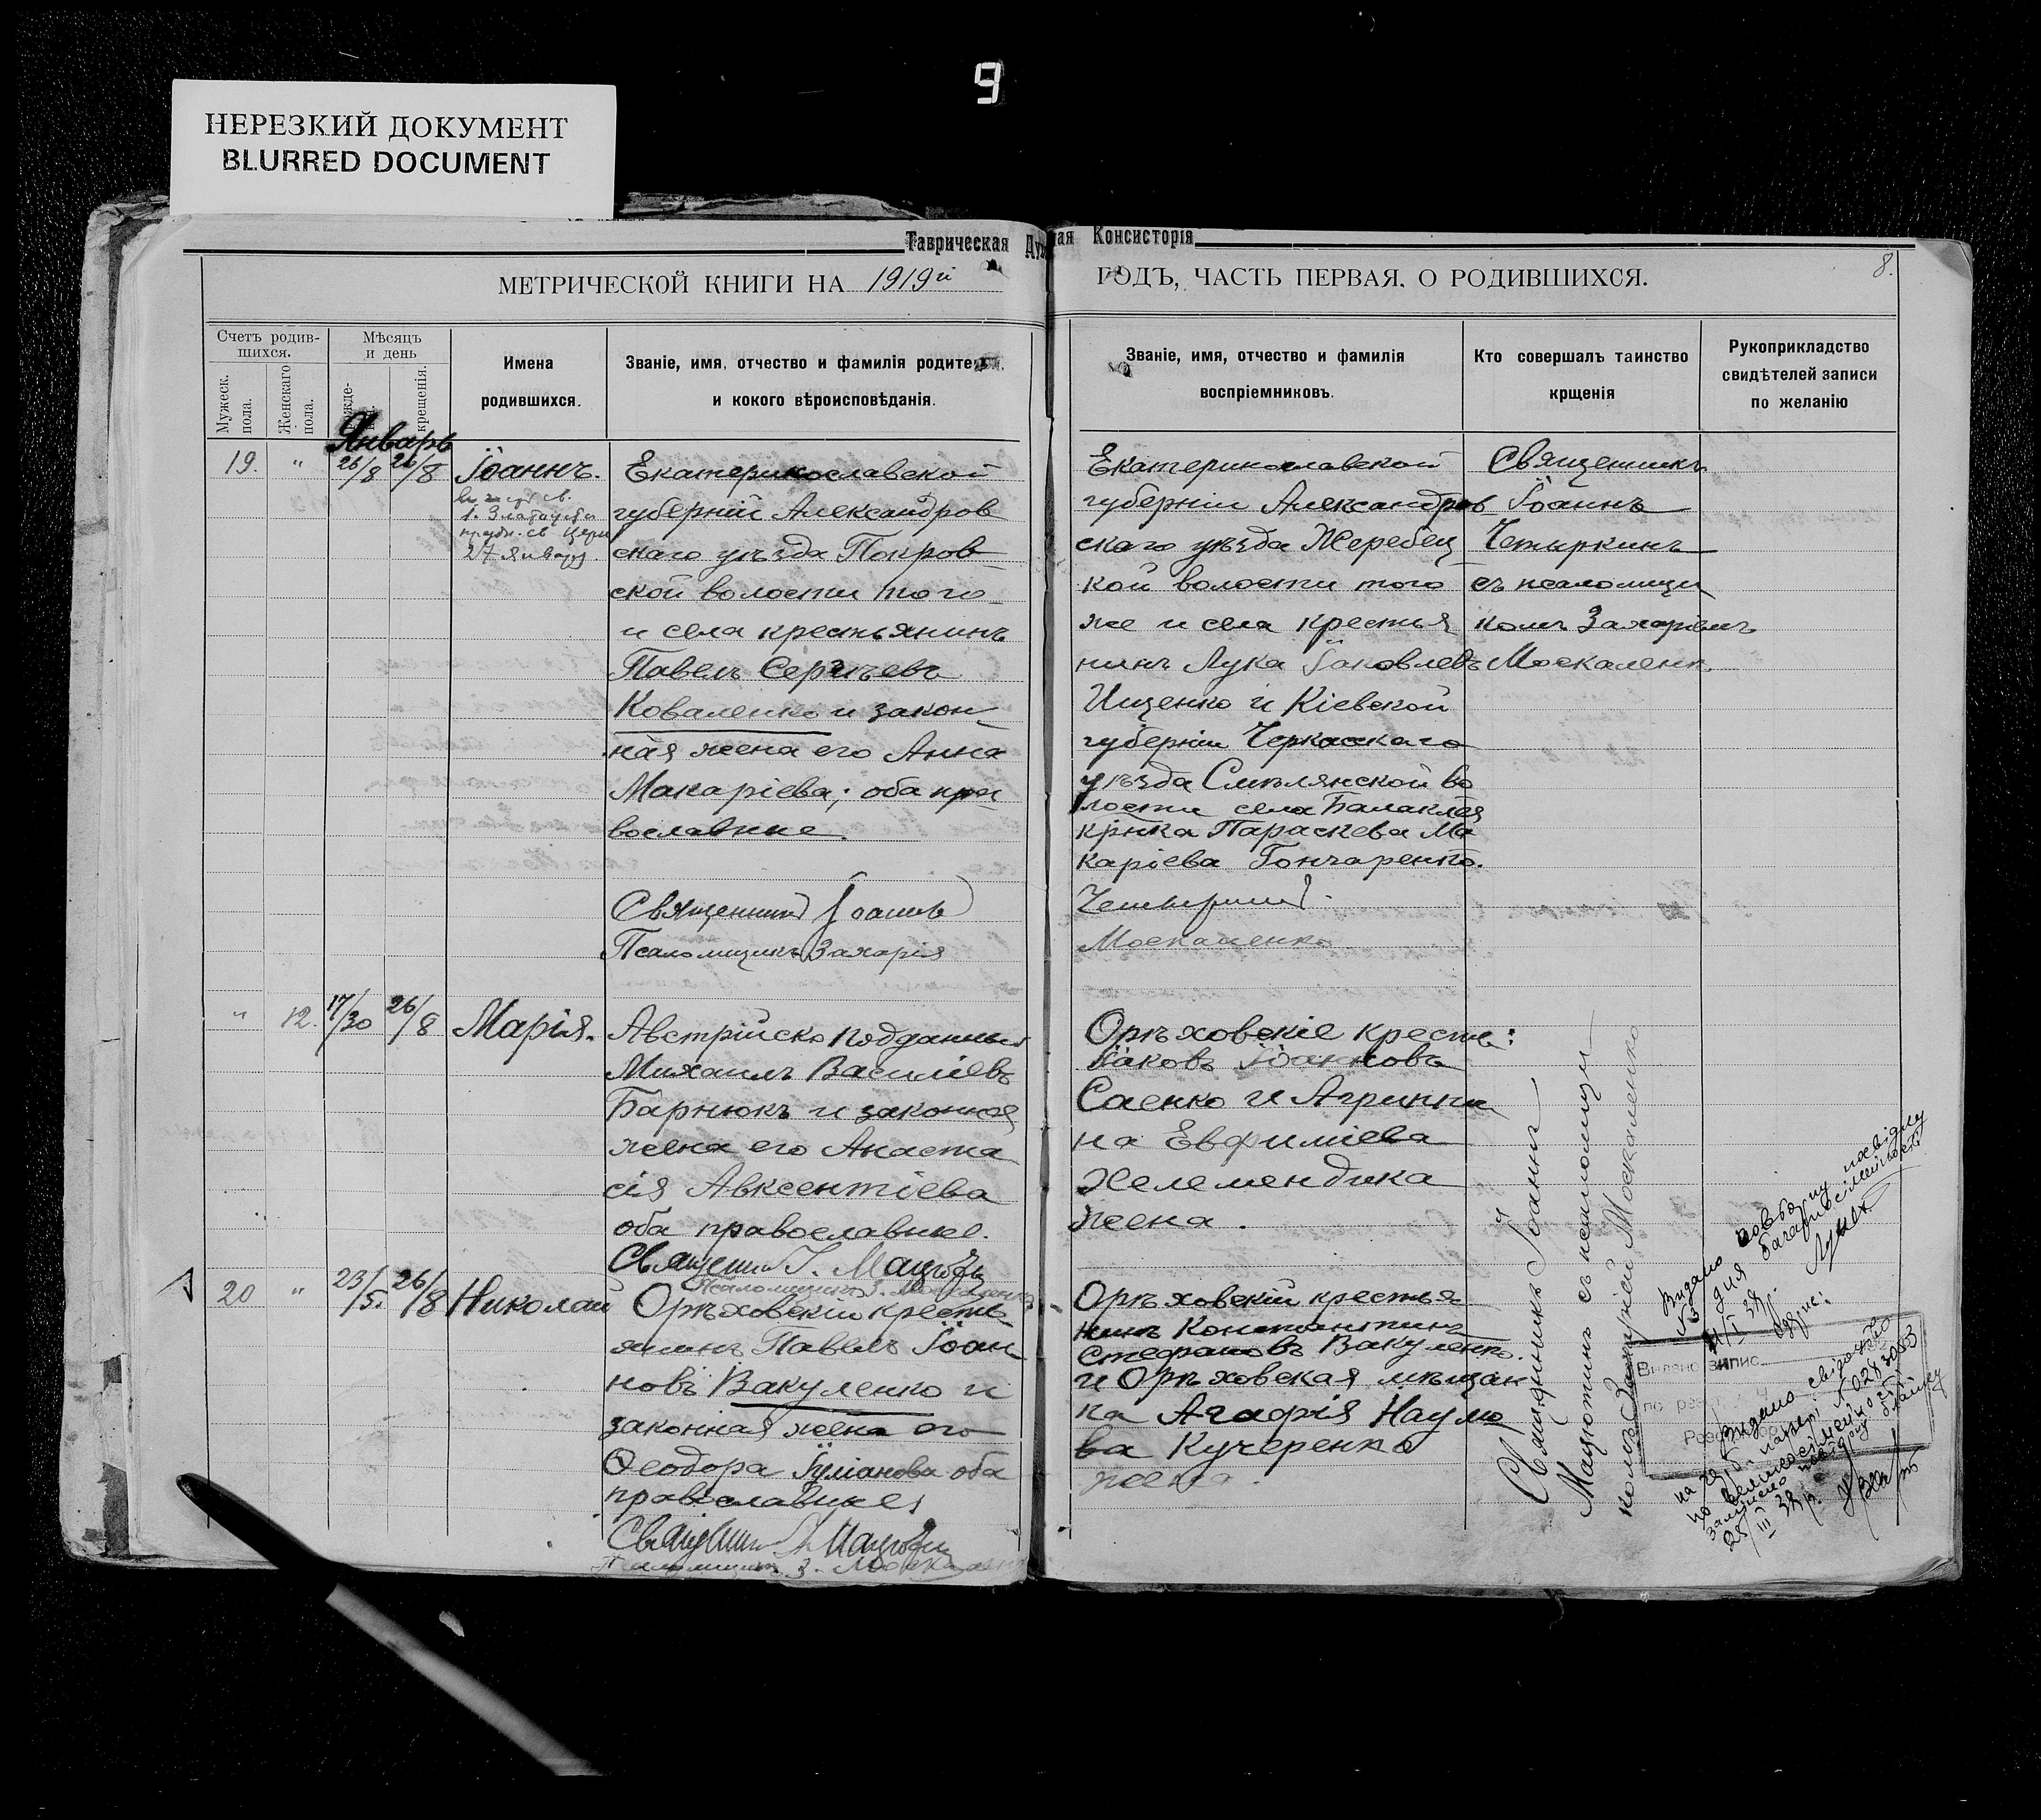 9
НЕРЕЗКИЙ ДОКУМЕНТ
BLURRED DOCUMENT
Таврическая Дух ная Консисторія
МЕТРИЧЕСКОЙ КНИГИ НА 1919й
ГОДЪ, ЧАСТЬ ПЕРВАЯ, О РОДИВШИХСЯ.
8.
Счетъ родив-
шихся.
Мужеск.
пола.
Женскаго
пола.
Мѣсяцъ
и день
крещенія.
Имена
родившихся.
Званіе, имя, отчество и фамилія родите
и кокого вѣроисповѣданія.
Званіе, имя, отчество и фамилія
воспріемниковъ.
Кто совершалъ таинство
крщенія
Рукоприкладство
свидѣтелей записи
по желанію
Январь
19.
"
26/8
26/8
Іоаннъ.
27 января
Екатеринославской
губерніи Александров
скаго уѣзда Покров
ской волости того
и села крестьянинъ
Павелъ Сергѣевъ
Коваленко и закон
ная жена его Анна
Макаріева; оба пра
вославные.
Священник Іоаннъ
Псаломщикъ Захарія
Екатеринославской
губерніи Александров
скаго уѣзда Жеребец
кой волости того
же и села крестья
нинъ Лука Іаковлевъ
Ищенко и Кіевской
губерніи Черкасскаго
уѣзда Смѣлянской во
лости села Балаклея
крнка Параскева Ма
каріева Гончаренко.
Москаленко
Священникъ
Іоаннъ
Четыркинъ
съ псаломщи
комъ Захаріемъ
Москаленк.
"
12.
17/30
26/8
Марія.
Австрійско подданный
Михаилъ Василіевъ
Барнюкъ и законная
жена его Анаста
сія Авксентіева
оба православные.
Орѣховскіе крестьи:
Іаковъ Іоанновъ
Саенко и Агриппи
на Евфиміева
Желемендика
жена.
20
"
23/5.
26/8
Николай
Орѣховскій кресть
янинъ Павелъ Іоан
новъ Вакуленко и
законная жена его
Ѳеодора Іуліанова оба
православные
Псаломщик З. Москаленко
Орѣховскій крестья
нинъ Константинъ
Стефановъ Вакуленко.
и Орѣховская мѣщан
ка Агафія Наумо
ва Кучеренко
жена.
Священникъ Іоаннъ
Мацютинъ съ псаломщи
комъ Захаріей Москаленко
Видано